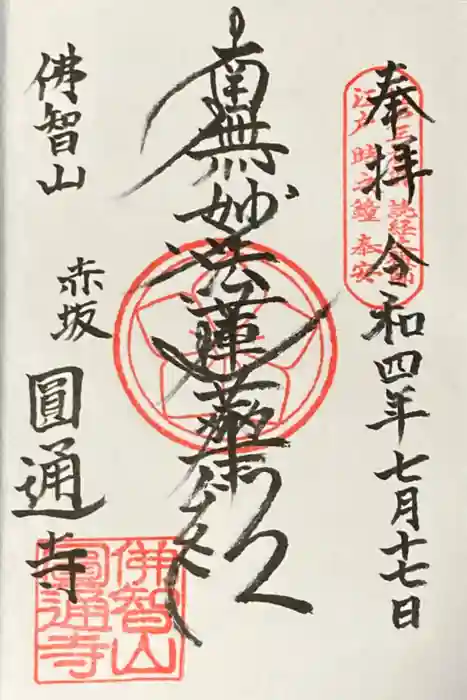 奉拝 令和四年七月十七日
江戸時之鐘 奉安
南無妙法蓮華経
佛智山
赤坂
圓通寺
佛智山
圓通寺